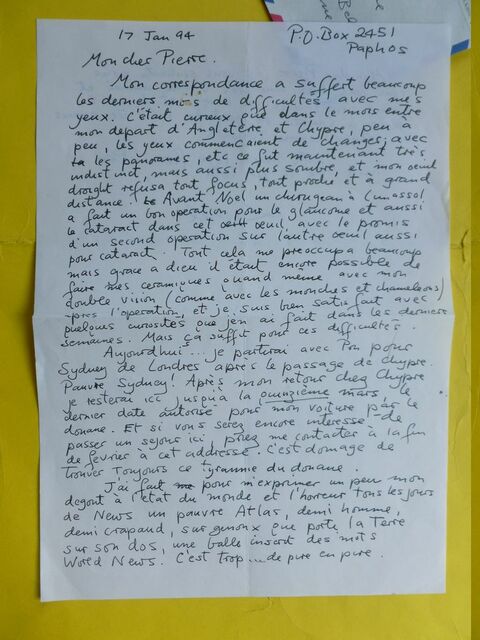 17 Jan 94
P.O. Box 2451
Paphos
Mon cher Pierre.
Mon correspondance a suffert beaucoup
les derniers mois de difficultés avec mes
yeux. C'était curieux que dans le mois entre
mon depart d'Angleterre, et Chypre, peu à
peu, les yeux commencaient de changer, avec
les panoramas, etc ce fut maintenant très
indistinct, mais aussi plus sombre, et mon oeuil
droight refusa tout focus, tout proche et à grand
distance. Avant Noel un chirugeau à Limassol
a fait un bon operation pour le glaucome et aussi
le cataract dans cet oeuil, avec le promis
d'un second operation sur l'autre oeuil aussi
pour cataract. Tout cela me preoccupa beaucoup
mais grace a dieu il était encore possible de
faire mes ceramiques quand même avec mon
double vision (comme avec les monches et chameleons)
l'operation, et je suis bien satisfait avec
quelques curosités que j'en ai fait dans les derniers
semaines. Mais ça suffit pour ces difficultés.
Aujourdhui... je partirai avec pour
Sydney de Londres après le passage de Chypre.
Pauvre Sydney! Après mon retour chez Chypre
je resterai ici jusqu'à la quinzième mars, le
dernier date autorisé pour mon voiture par le
douane. Et si vous serez encore interessé de
passer un sejour ici, priez me contacter à la fin
de fevrier à cet addresse. C'est domage de
trouver toujours ce tyrannie du douane.
J'ai fait pour m'exprimer un peu mon
degout à l'etat du monde et l'horreur tous les jours
de News un pauvre Atlas, demi homme,
demi crapaud, sur genoux que porte la Terre
sur son dos, une balle inscrit des mots
World News. C'est trop... de pire en pire.